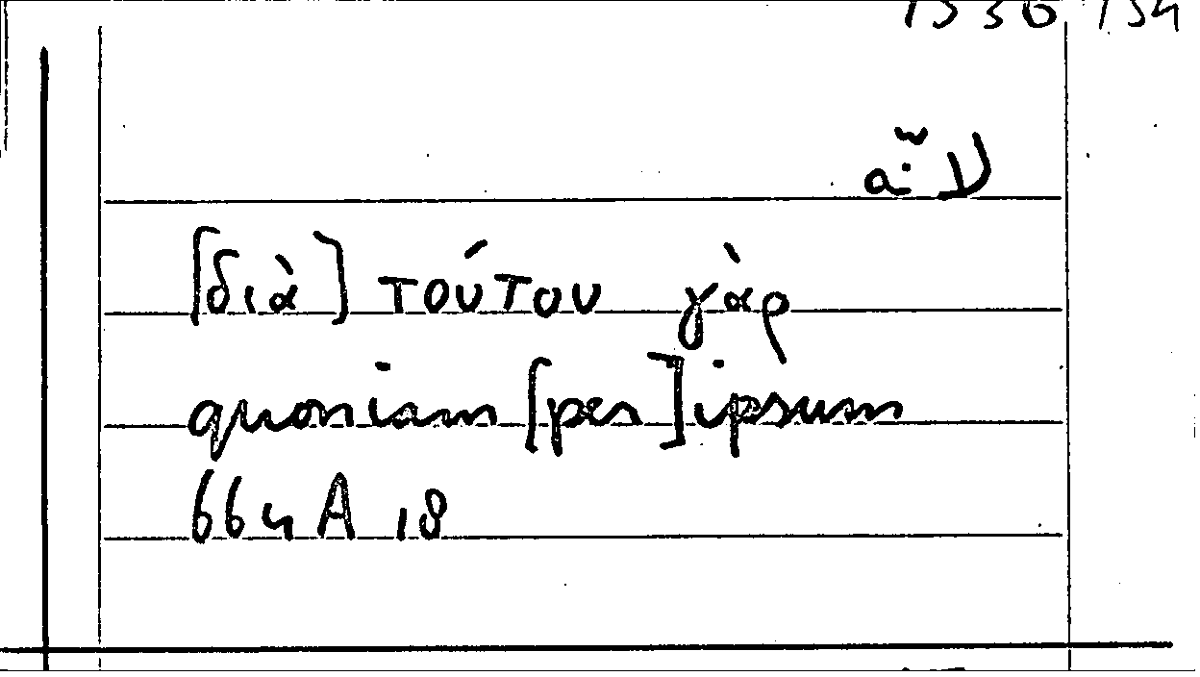 [διὰ] τούτου γὰρ
quoniam [per] ipsum
664 A 18